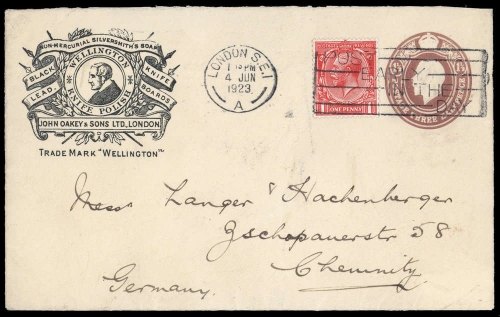 NON-MERCURIAL SILVERSMITH'S SOAP
WELLINGTON
BLACK LEAD.
KNIFE BOARDS
KNIFE POLISH
JOHN OAKEY & SONS LTD, LONDON.
TRADE MARK "WELLINGTON"
LONDON. S.E.1
PM
4 JUN
1923
A
1 ONE PENNY 1
THREE
IN THE
Messrs Langer & Hachenberger
Zschopauerstr 58
Chemnitz
Germany.